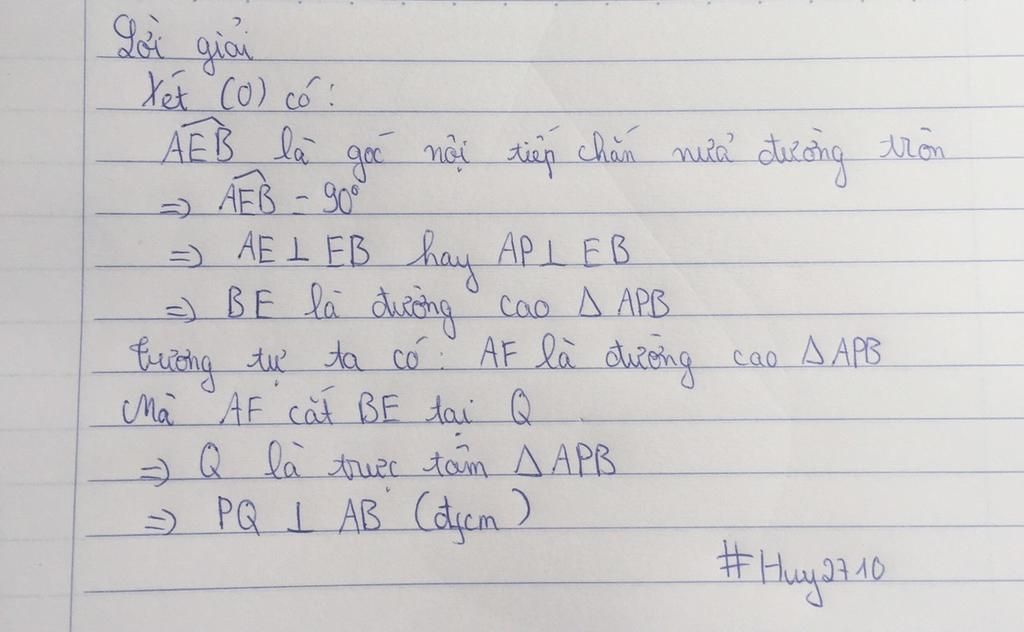 Lời giải
Xét (O) có:
AEB là góc nội tiếp chắn nửa đường tròn
⇒ AEB = 90°
⇒ AE ⊥ EB hay AP ⊥ EB
⇒ BE là đường cao Δ APB
tương tự ta có: AF là đường cao Δ APB
Mà AF cắt BE tại Q
⇒ Q là trực tâm Δ APB
⇒ PQ ⊥ AB (đpcm)
#Huy2710